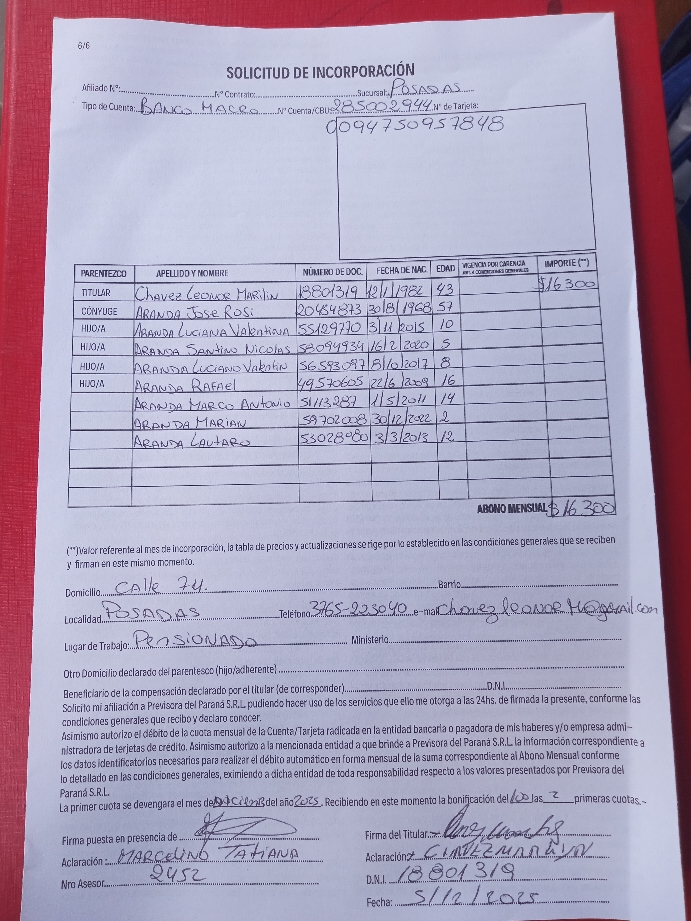 6/6
SOLICITUD DE INCORPORACIÓN
Afiliado N°: N° Contrato: Sucursal: POSADAS
Tipo de Cuenta: BANCO MACRO N° Cuenta/CBU: 285002944 N° de Tarjeta:
0094750957848
PARENTEZCO APELLIDO Y NOMBRE NÚMERO DE DOC. FECHA DE NAC. EDAD VIGENCIA POR CARENCIA EN LA CONDICIONES GENERALES IMPORTE (**)
TITULAR Chavez Leonor Marilin 18801319 12/1/1982 43 $16300
CÓNYUGE ARANDA Jose Rosi 20454873 30/8/1968 57
HIJO/A ARANDA LUCIANA Valentina 55129770 3/11/2015 10
HIJO/A ARANDA SANTINO NICOLAS 58094934 16/2/2020 5
HIJO/A ARANDA LUCIANO Valentin 56593097 8/10/2017 8
HIJO/A ARANDA RAFAel 49570605 22/6/2009 16
ARANDA MARCO ANTONIO 51113287 1/5/2011 14
ARANDA MARIAN 59702008 30/12/2022 2
ARANDA LAUTARO 53028980 3/3/2013 12
ABONO MENSUAL $16300
(**)Valor referente al mes de incorporación, la tabla de precios y actualizaciones se rige por lo establecido en las condiciones generales que se reciben
y firman en este mismo momento.
Domicilio CALLE 74. Barrio
Localidad POSADAS Teléfono 3765-223040 e-mail chavezleonorM@gmail.com
Lugar de Trabajo: PENSIONADO Ministerio
Otro Domicilio declarado del parentesco (hijo/adherente)
Beneficiario de la compensación declarado por el titular (de corresponder) D.N.I.
Solicito mi afiliación a Previsora del Paraná S.R.L. pudiendo hacer uso de los servicios que ello me otorga a las 24hs. de firmada la presente, conforme las
condiciones generales que recibo y declaro conocer.
Asimismo autorizo el débito de la cuota mensual de la Cuenta/Tarjeta radicada en la entidad bancaria o pagadora de mis haberes y/o empresa admi-
nistradora de terjetas de crédito. Asimismo autorizo a la mencionada entidad a que brinde a Previsora del Paraná S.R.L. la información correspondiente a
los datos identificatorios necesarios para realizar el débito automático en forma mensual de la suma correspondiente al Abono Mensual conforme
lo detallado en las condiciones generales, eximiendo a dicha entidad de toda responsabilidad respecto a los valores presentados por Previsora del
Paraná S.R.L.
La primer cuota se devengara el mes de Diciemb del año 2025. Recibiendo en este momento la bonificación del 100 las 2 primeras cuotas.-
Firma puesta en presencia de
Firma del Titular:
Aclaración: MARCELINO TATIANA
Aclaración:
Nro Asesor 2452
D.N.I. 18801319
Fecha: 5/12/2025